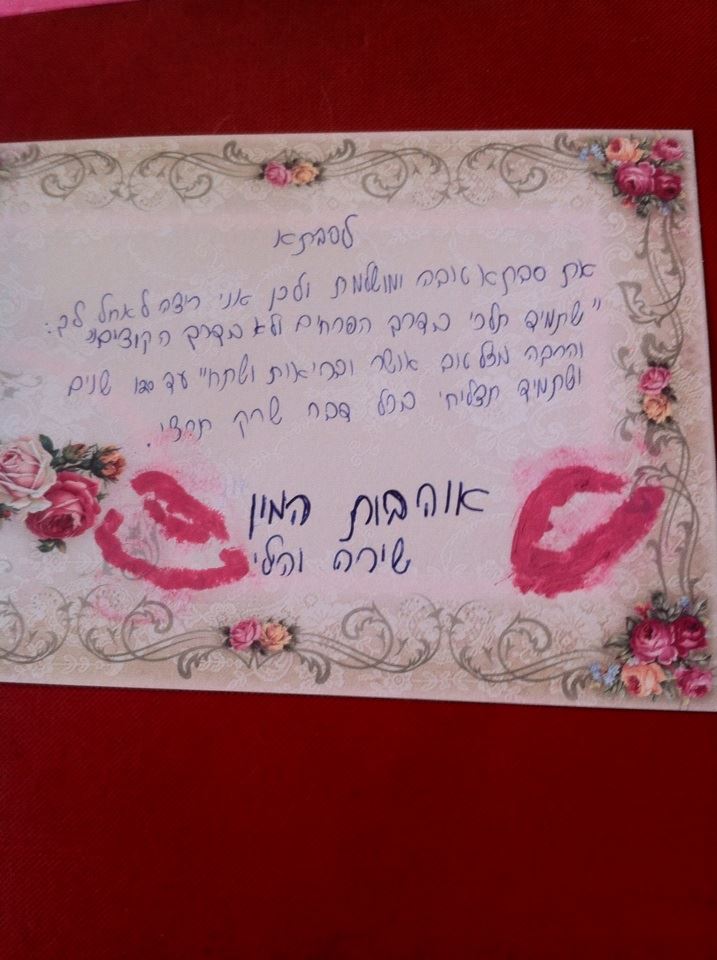 לסבתא
את סבתא טובה ומושלמת ולכן אני רוצה לאחל לך:
"שתמיד תלכי בדרך הפרחים ולא בדרך הקוצים"
והרבה מזל טוב אושר ובריאות ושתחיי עד 120 שנים
ושתמיד תצליחי בכל דבר שרק תרצי.
אוהבות המון
שירה והלי